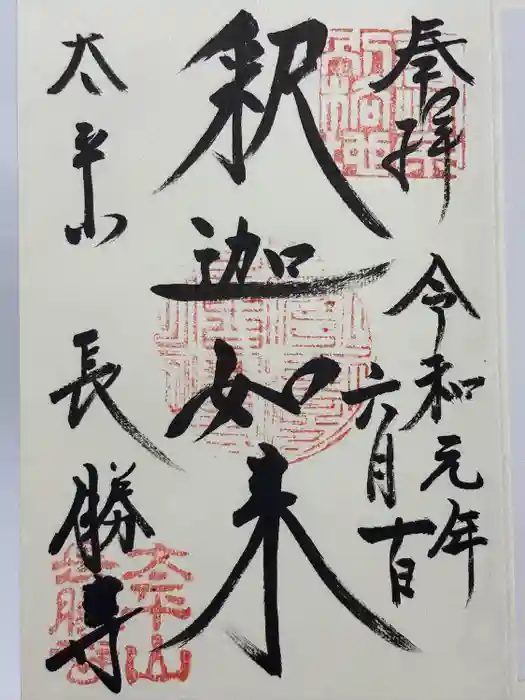 奉拝
令和元年
六月十日
釈迦如来
太平山
長勝寺
太平山